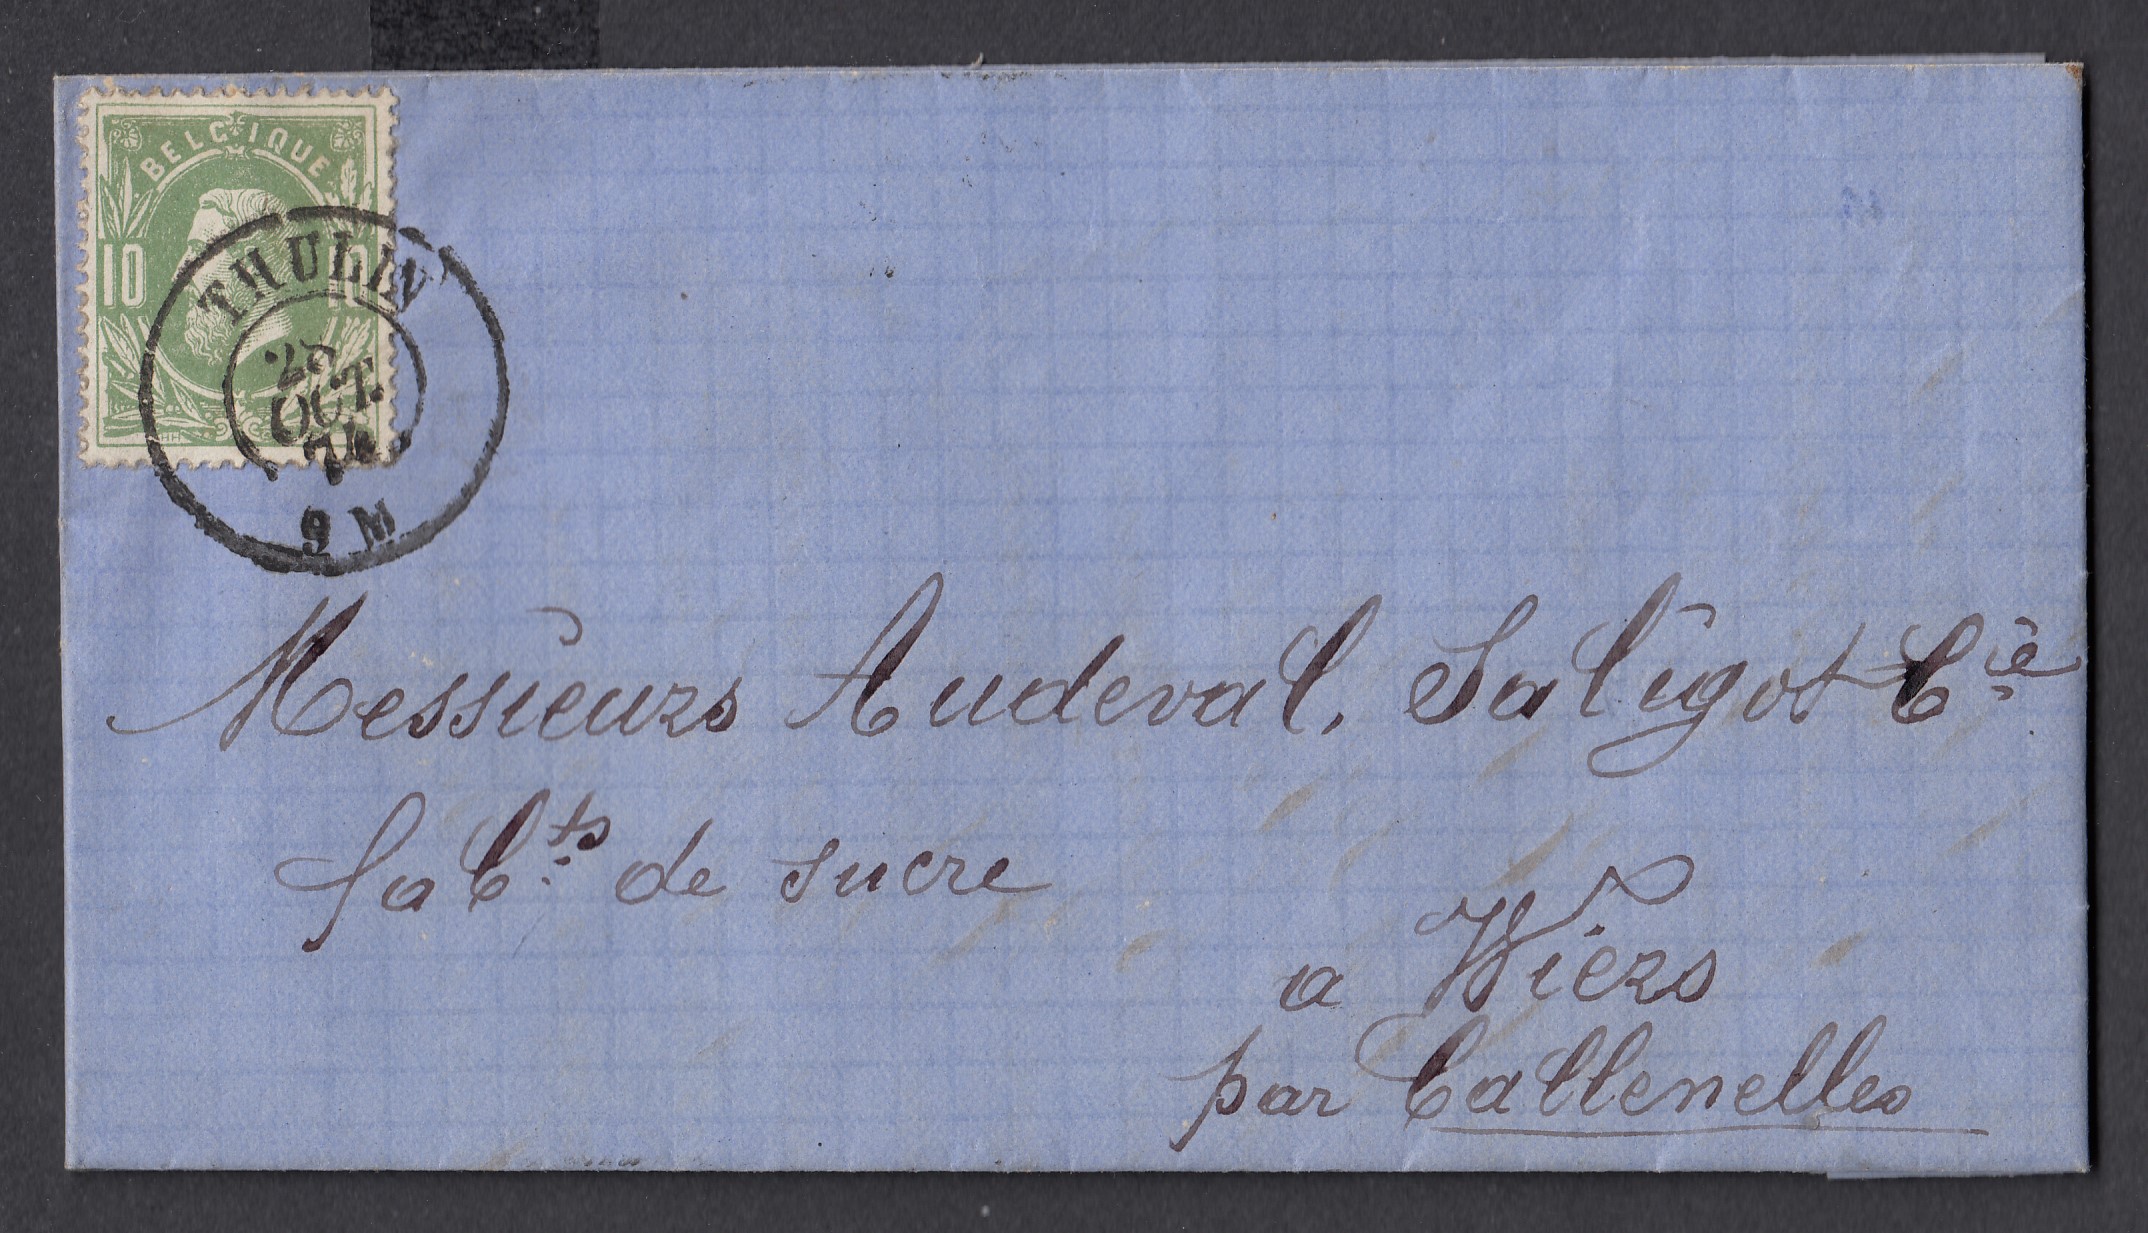 BELGIQUE
10 10
THULIN
OCT.
74
9 M
Messieurs Audeval, Saligot Cie
fabts de sucre
a Wiers
par Callenelles